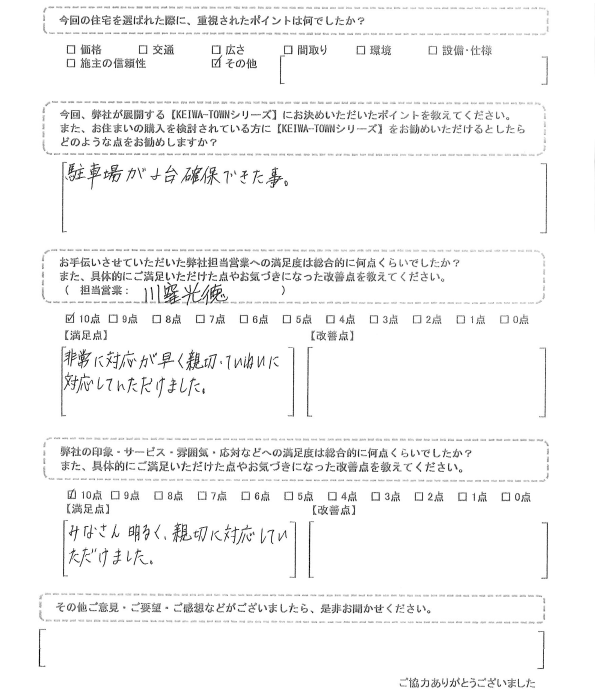 今回の住宅を選ばれた際に、重視されたポイントは何でしたか？
□ 価格　□ 交通　□ 広さ　□ 間取り　□ 環境　□ 設備・仕様
□ 施主の信頼性　☑ その他
今回、弊社が展開する【KEIWA-TOWNシリーズ】にお決めいただいたポイントを教えてください。
また、お住まいの購入を検討されている方に【KEIWA-TOWNシリーズ】をお勧めいただけるとしたら
どのような点をお勧めしますか？
駐車場が 台確保できた事。
お手伝いさせていただいた弊社担当営業への満足度は総合的に何点くらいでしたか？
また、具体的にご満足いただけた点やお気づきになった改善点を教えてください。
（ 担当営業： 川窪光徳 ）
☑ 10点 □ 9点 □ 8点 □ 7点 □ 6点 □ 5点 □ 4点 □ 3点 □ 2点 □ 1点 □ 0点
【満足点】　【改善点】
非常に対応が早く親切、ていねいに
対応していただけました。
弊社の印象・サービス・雰囲気・応対などへの満足度は総合的に何点くらいでしたか？
また、具体的にご満足いただけた点やお気づきになった改善点を教えてください。
☑ 10点 □ 9点 □ 8点 □ 7点 □ 6点 □ 5点 □ 4点 □ 3点 □ 2点 □ 1点 □ 0点
【満足点】　【改善点】
みなさん明るく、親切に対応してい
ただけました。
その他ご意見・ご要望・ご感想などがございましたら、是非お聞かせください。
ご協力ありがとうございました